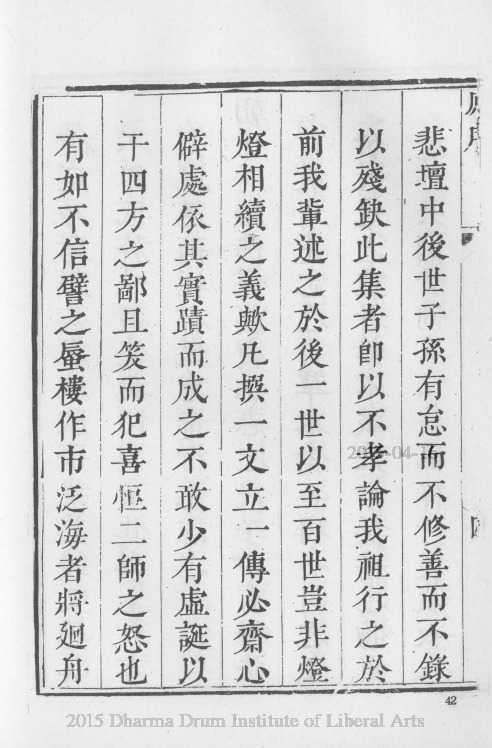 悲壇中後世子孫有怠而不修善而不錄
以殘缺此集者卽以不孝論我祖行之於
前我輩述之於後一世以至百世豈非燈
燈相續之義歟凡撰一文立一傳必齋心
僻處依其實蹟而成之不敢少有虛誕以
干四方之鄙且笑而犯喜恇二師之怒也
有如不信譬之蜃樓作市泛海者將廻舟
42
2015 Dharma Drum Institute of Liberal Arts